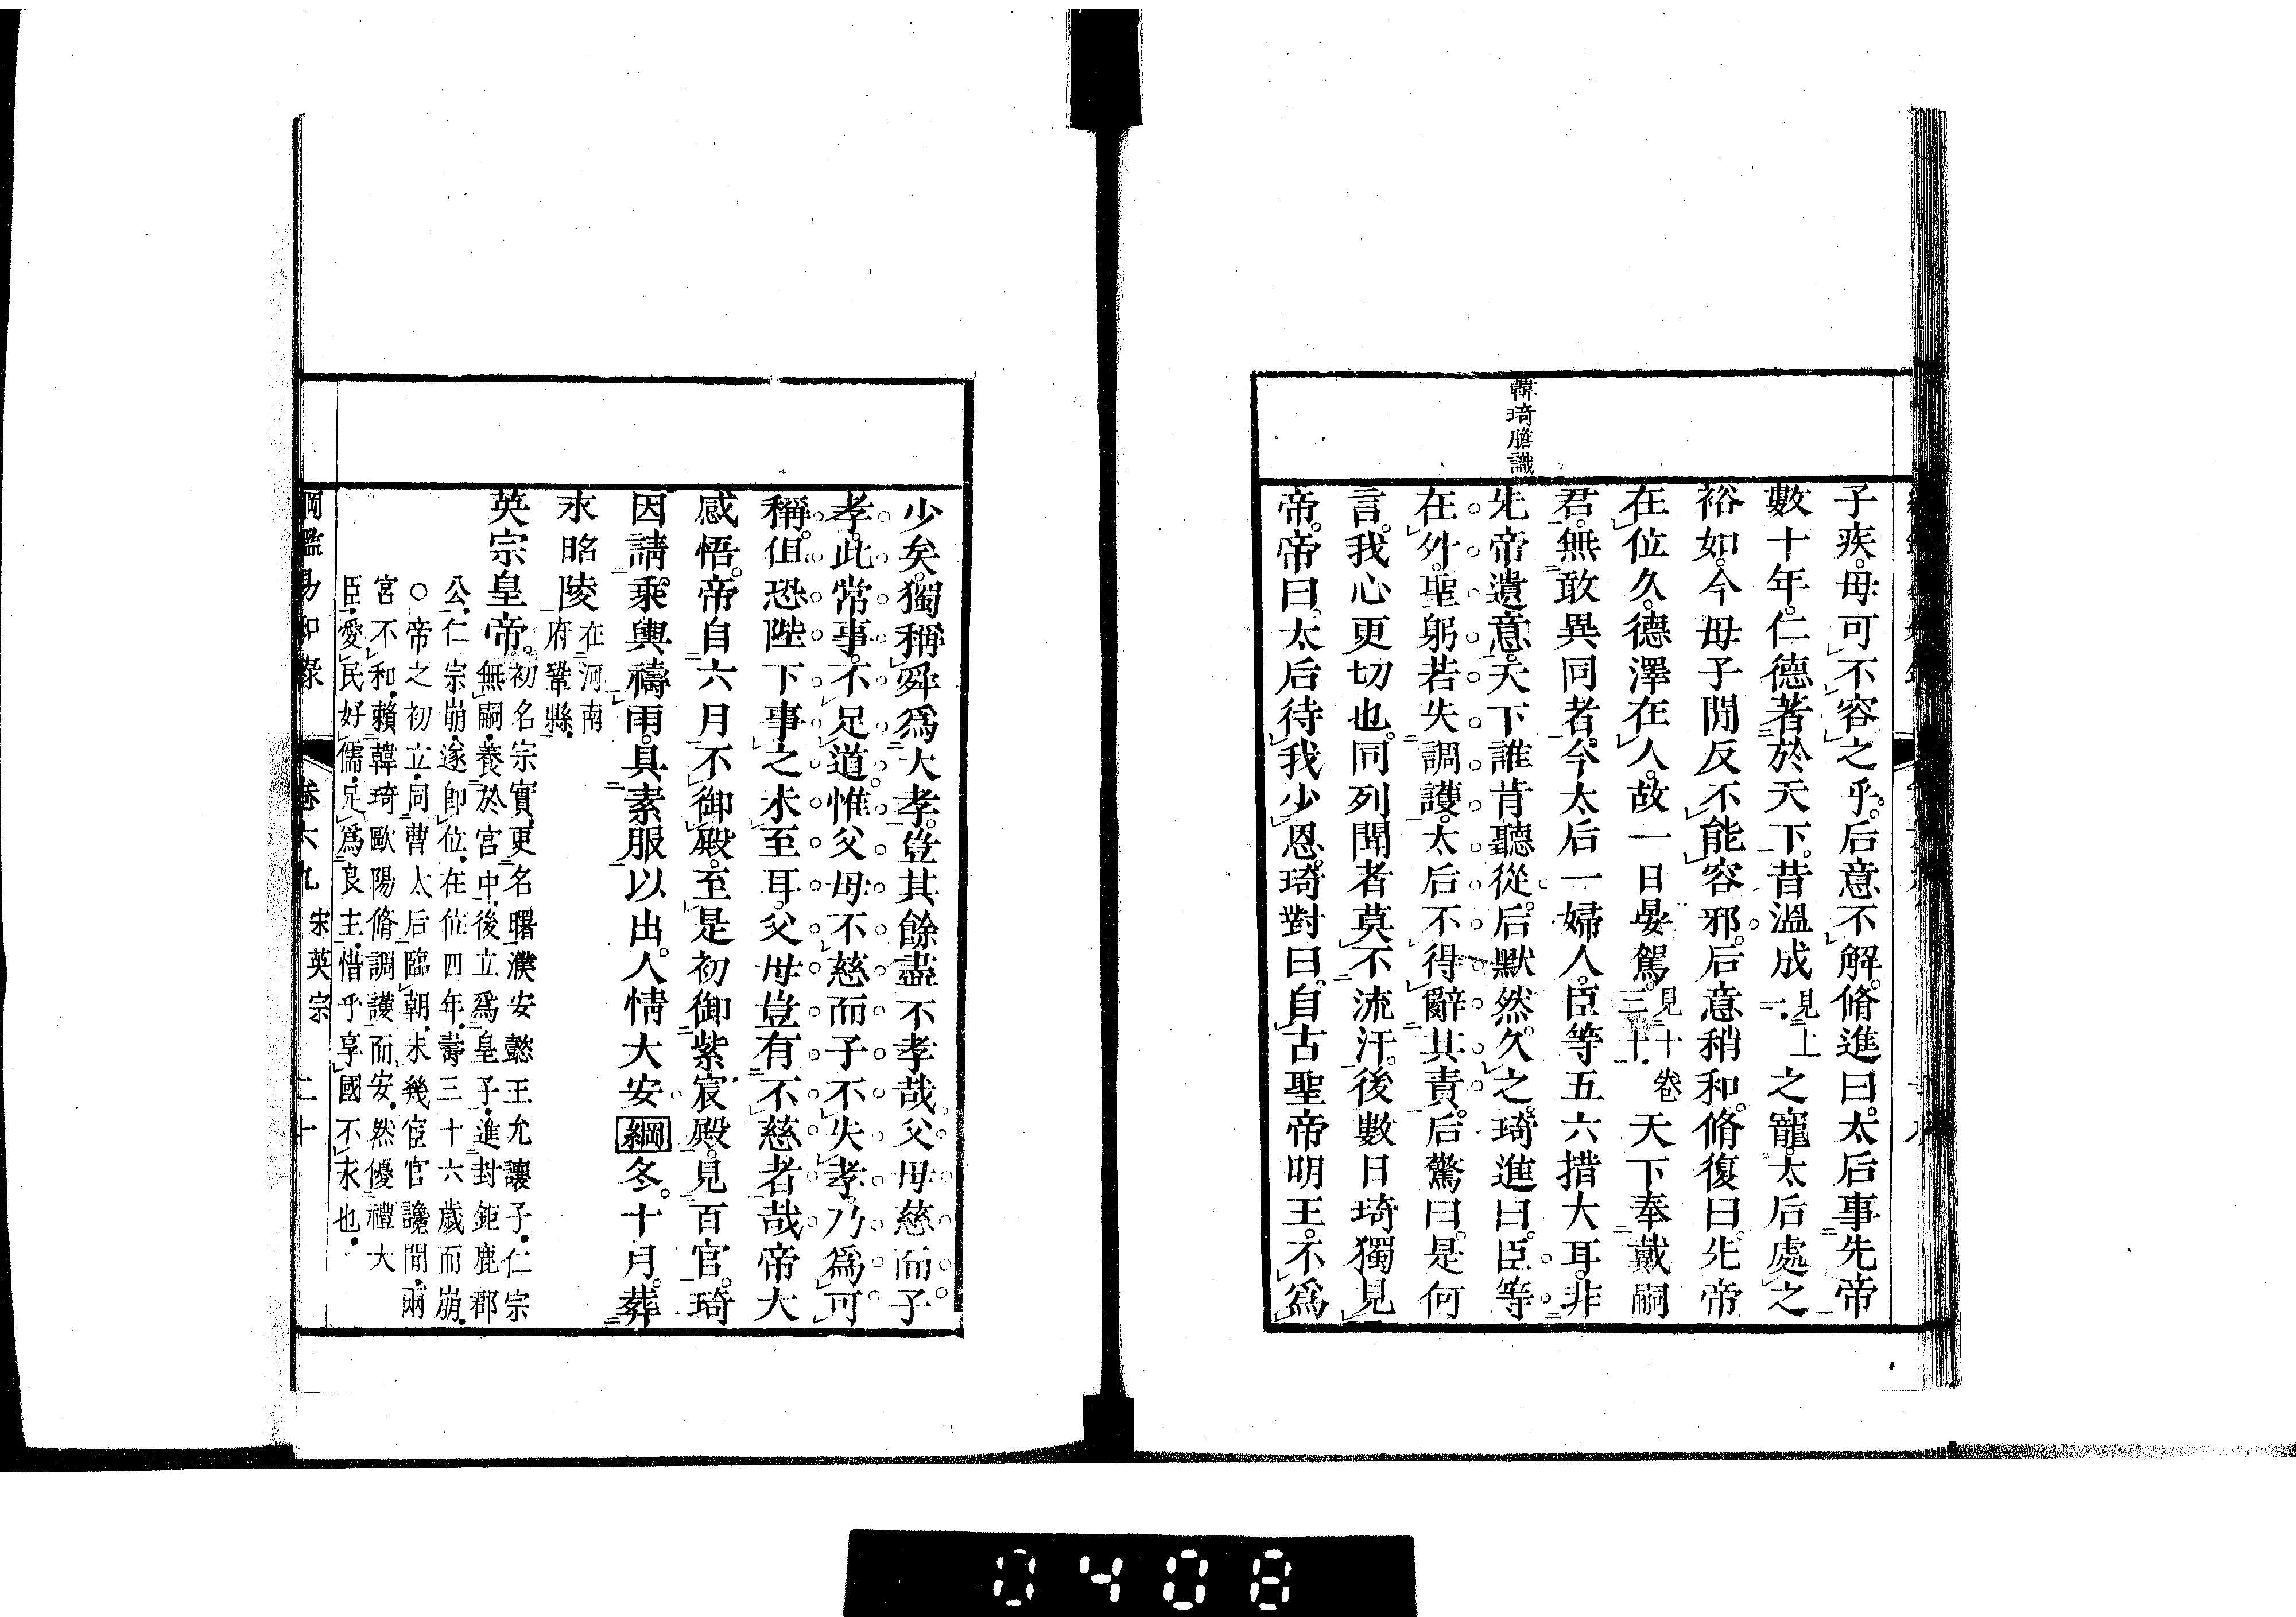 韓琦膽識
子疾。母可不容之乎。后意不解。脩進曰。太后事先帝
數十年。仁德著於天下。昔溫成見上一。之寵。太后處之
裕如。今母子閒反不能容邪。后意稍和。脩復曰。先帝
在位久。德澤在人。故一日晏駕。見十卷三十。天下奉戴嗣
君。無敢異同者。今太后一婦人。臣等五六措大耳。非
先帝遺意。天下誰肯聽從。后默然。久之。琦進曰。臣等
在外。聖躬若失調護。太后不得辭其責。后驚曰。是何
言。我心更切也。同列聞者莫不流汗。後數日琦獨見
帝。帝曰。太后待我少恩。琦對曰。自古聖帝明王。不爲
少矣。獨稱舜爲大孝。豈其餘盡不孝哉。父母慈而子
孝。此常事。不足道。惟父母不慈而子不失孝。乃爲可
稱。但恐陛下事之未至耳。父母豈有不慈者哉。帝大
感悟。帝自六月不御殿。至是初御紫宸殿。見百官。琦
因請乘輿禱雨。具素服以出。人情大安綱冬。十月。葬
永昭陵在河南府鞏縣。
英宗皇帝。初名宗實。更名曙。濮安懿王允讓子。仁宗
無嗣。養於宮中。後立爲皇子。進封鉅鹿郡
公。仁宗崩。遂卽位。在位四年。壽三十六歲而崩。
○帝之初立。同曹太后臨朝。未幾宦官讒閒。兩
宮不和。賴韓琦歐陽脩調護而安。然優禮大
臣。愛民好儒。足爲良主。惜乎享國不永也。
綱鑑易知錄 卷六九 宋英宗 二十